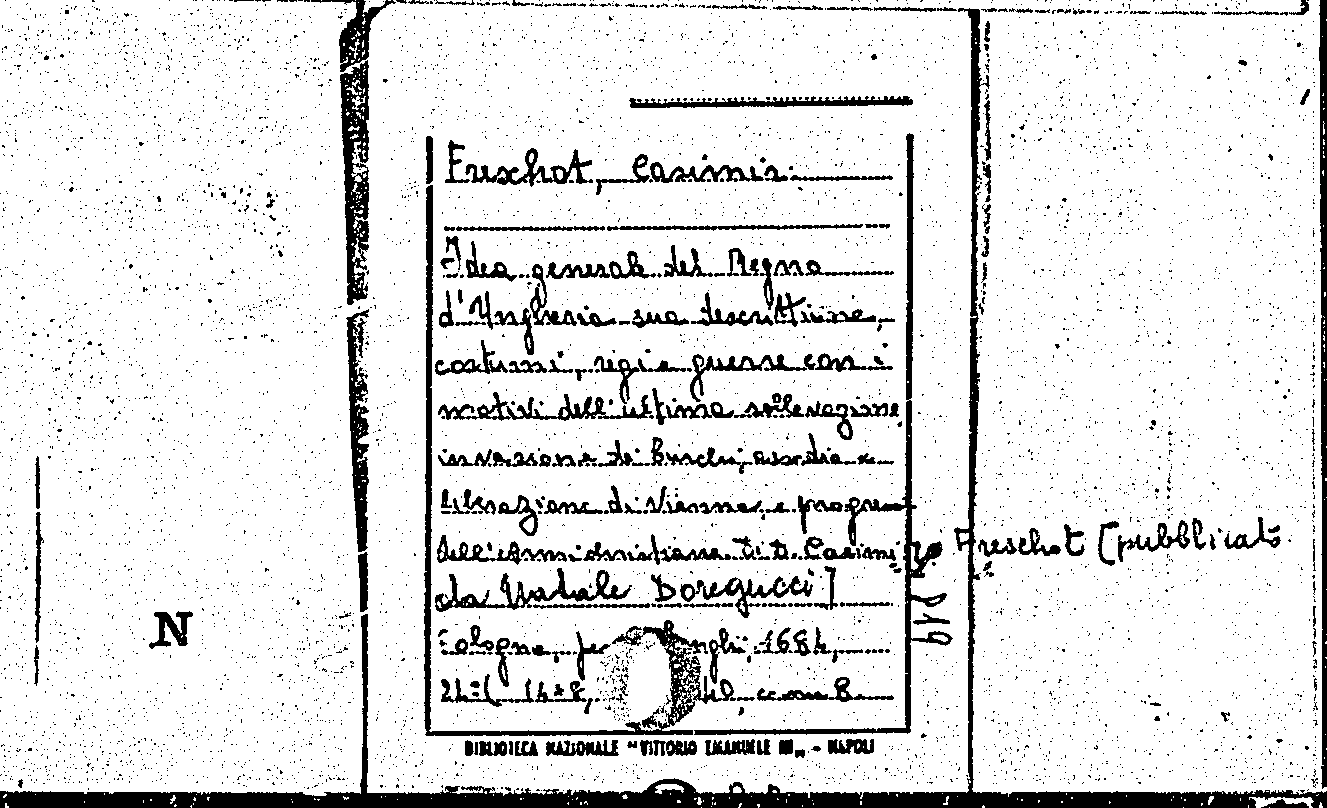 Freschot, Casimir.
Idea generale del Regno
d'Ungheria sua descrittione,
costumi, regi e guerre con i
motivi dell'ultima sollevazione
invasione de Turchi, assedio e
liberazione di Vienna, e progressi
dell'Armi christiane di D. Casimiro Freschot [pubblicato
da Natale Doregucci]
Bologna, per 1684,
8.
BIBLIOTECA NAZIONALE "VITTORIO EMANUELE III" - NAPOLI
N